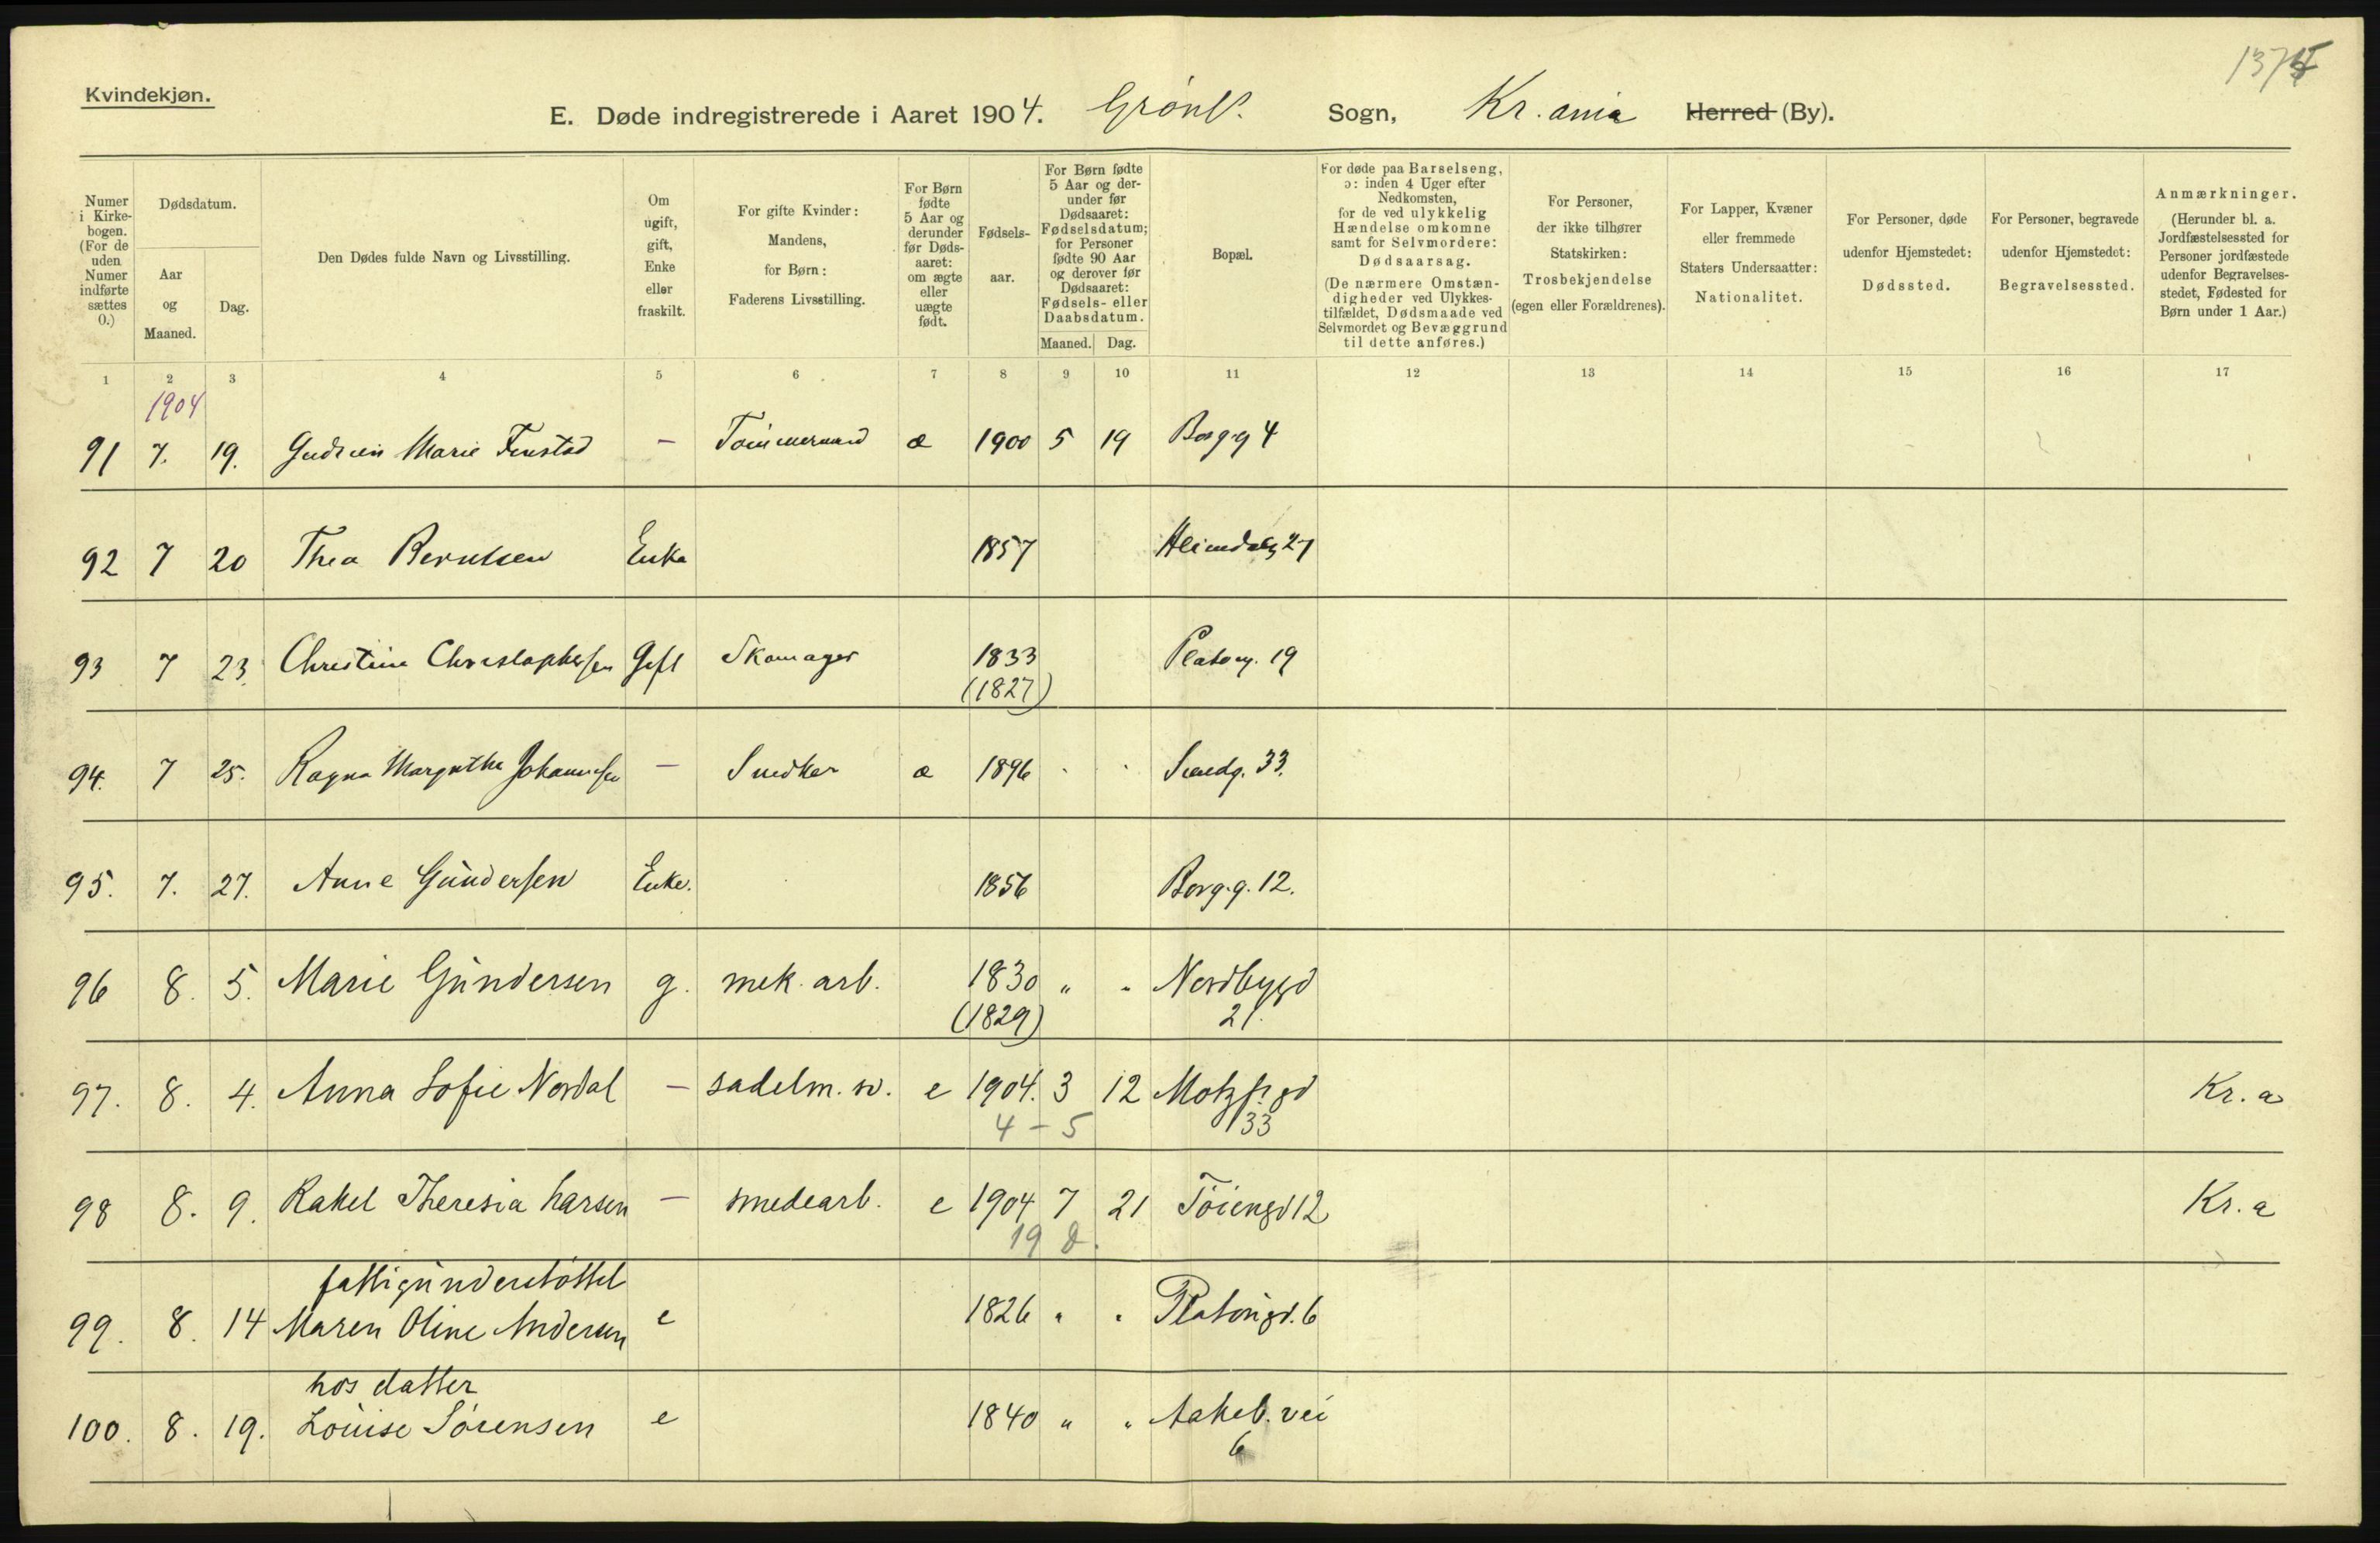 Kvindekjøn.
E. Døde indregistrerede i Aaret 1904. Grønl. Sogn, Kr.ania Herred (By).
Numer i Kirkebogen. (For de uden Numer indførte sættes 0.)
Dødsdatum.
Aar og Maaned.
Dag.
Den Dødes fulde Navn og Livsstilling.
Om ugift, gift, Enke eller fraskilt.
For gifte Kvinder: Mandens, for Børn: Faderens Livsstilling.
For Børn fødte 5 Aar og derunder før Dødsaaret: om ægte eller uægte født.
Fødselsaar.
For Børn fødte 5 Aar og derunder før Dødsaaret: Fødselsdatum; for Personer fødte 90 Aar og derover før Dødsaaret: Fødsels- eller Daabsdatum.
Maaned. Dag.
Bopæl.
For døde paa Barselseng, ɔ: inden 4 Uger efter Nedkomsten, for de ved ulykkelig Hændelse omkomne samt for Selvmordere: Dødsaarsag. (De nærmere Omstændigheder ved Ulykkestilfældet, Dødsmaade ved Selvmordet og Bevæggrund til dette anføres.)
For Personer, der ikke tilhører Statskirken: Trosbekjendelse (egen eller Forældrenes).
For Lapper, Kvæner eller fremmede Staters Undersaatter: Nationalitet.
For Personer, døde udenfor Hjemstedet: Dødssted.
For Personer, begravede udenfor Hjemstedet: Begravelsessted.
Anmærkninger. (Herunder bl. a. Jordfæstelsessted for Personer jordfæstede udenfor Begravelsesstedet, Fødested for Børn under 1 Aar.)
1 2 3 4 5 6 7 8 9 10 11 12 13 14 15 16 17
1904
91 7. 19. Gudrun Marie Finstad – Tömmermand æ 1900 5 19 Borg.g 4
92 7 20 Thea Berntsen Enke 1857 Heimdalsg 27
93 7 23. Christine Christophersen Gift Skomager 1833 Platoug. 19
(1827)
94. 7 25. Ragna Margrethe Johannesen – Snedker æ 1896 Smedg. 33.
95. 7. 27. Anne Gundersen Enke. 1856 Borg.g. 12.
96 8. 5. Marie Gundersen g. mek. arb. 1830 " " Nordbygd
(1829) 21.
97. 8. 4. Anna Sofie Nordal – sadelm. sv. e 1904. 3 12 Motzf. gd Kr. a
4 – 5 33
98 8. 9. Rakel Theresia Larsen – smedearb. e 1904 7 21 Töiengd 12 Kr. a
19 d.
fattigunderstöttet
99. 8. 14 Maren Oline Andersen e 1826 " " Platougd. 6
hos datter
100. 8. 19. Louise Sörensen e 1840 " " Aakeb. vei
6